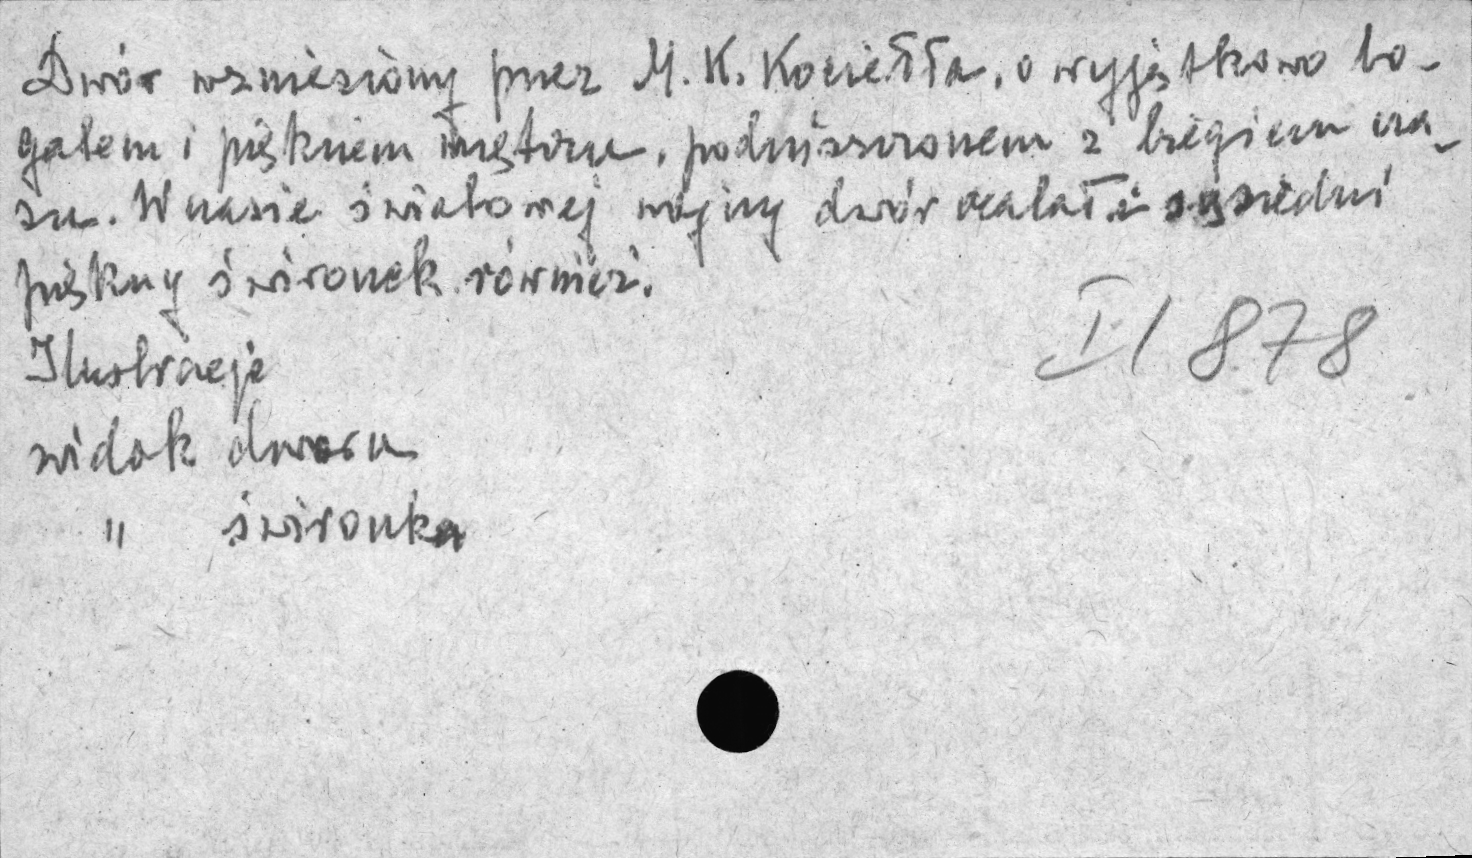 Dwór wzniesiony przez M. K. Kociełła, o wyjątkowo bo-
gatem i pięknem wnętrzu, podniszczonem z biegiem cza-
su. W czasie światowej wojny dwór ocalał i sąsiedni
piękny świronek również.
II/878
Ilustracje
widok dworu
" świronka